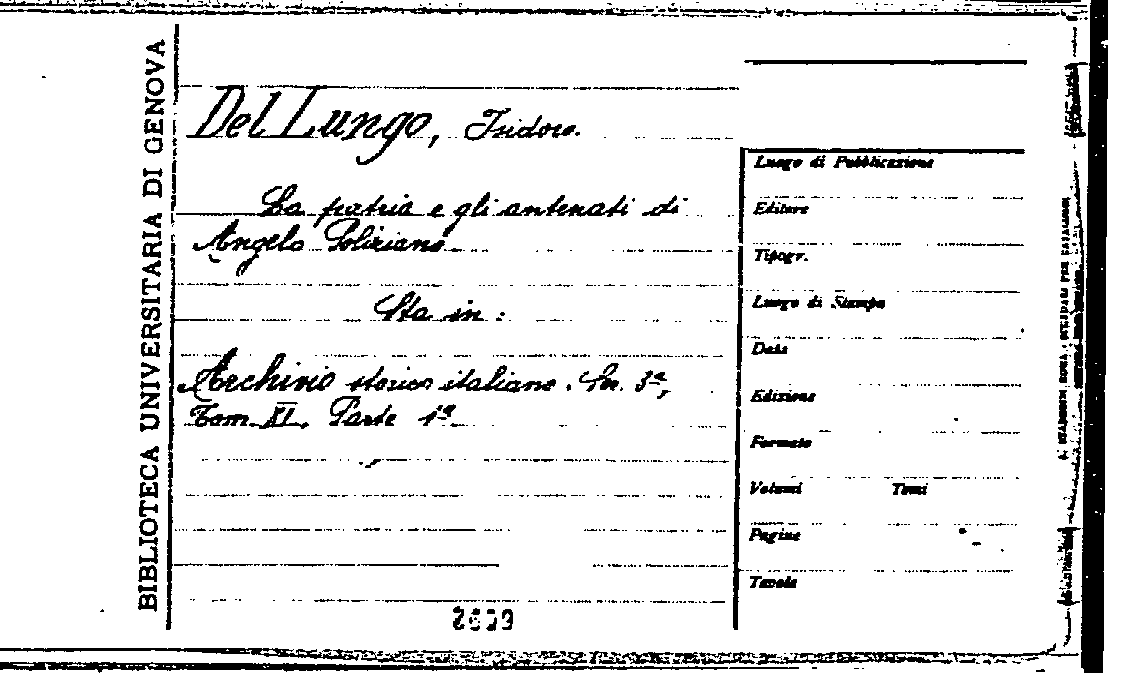 BIBLIOTECA UNIVERSITARIA DI GENOVA
Del Lungo, Isidoro.
La patria e gli antenati di
Angelo Poliziano
Sta in:
Archivio storico italiano. Ser. 3ª,
Tom. XI. Parte 1ª
Luogo di Pubblicazione
Editore
Tipogr.
Luogo di Stampa
Data
Edizione
Formato
Volumi Tomi
Pagine
Tavole